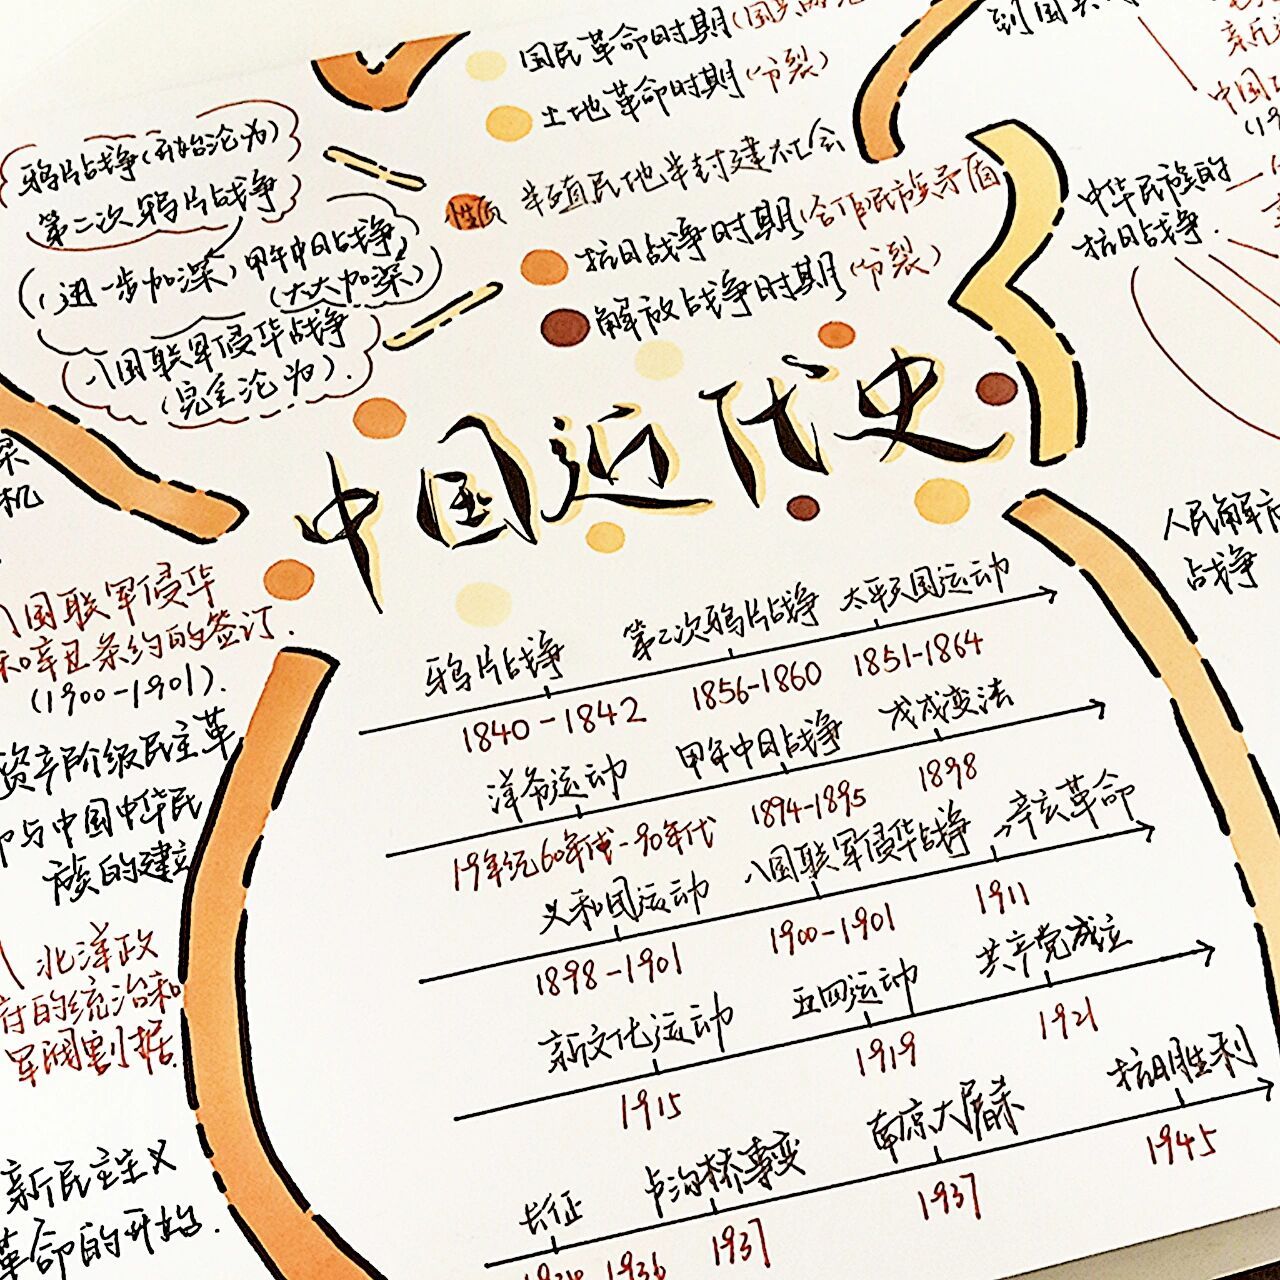 国民革命时期(国共
土地革命时期(分裂)
性质 半殖民地半封建社会
抗日战争时期(合作民族矛盾
解放战争时期(分裂)
鸦片战争(开始沦为)
第二次鸦片战争
(进一步加深)甲午中日战争
(大大加深)
八国联军侵华战争
(完全沦为).
到国共
中国
中华民族的
抗日战争.
人民解放
战争
中国近代史
机
八国联军侵华
和辛丑条约的签订.
(1900-1901).
资产阶级民主革
命与中国中华民
族的建立
北洋政
府的统治和
军阀割据.
新民主主义
革命的开始.
鸦片战争 第二次鸦片战争 太平天国运动
1840-1842 1856-1860 1851-1864
洋务运动 甲午中日战争 戊戌变法
19年纪60年代-90年代 1894-1895 1898
义和团运动 八国联军侵华战争 辛亥革命
1898-1901 1900-1901 1911
新文化运动 五四运动 共产党成立
1915 1919 1921
长征 卢沟桥事变 南京大屠杀 抗日胜利
1936 1937 1937 1945